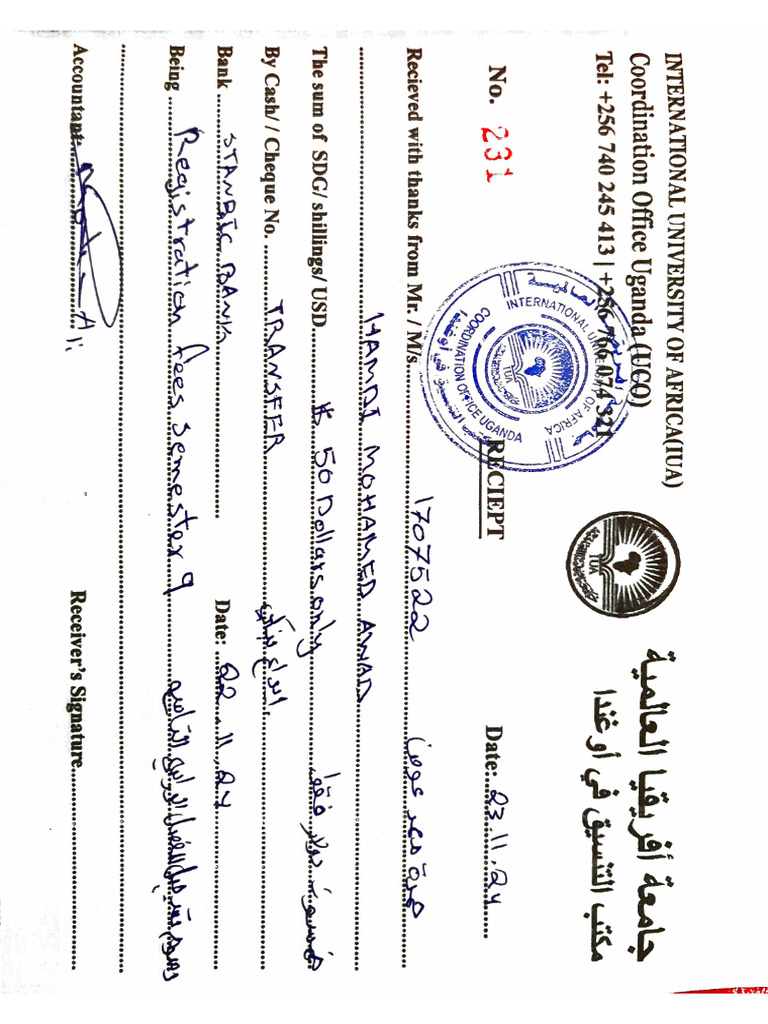 INTERNATIONAL UNIVERSITY OF AFRICA(IUA)
Coordination Office Uganda (UCO)
Tel: +256 740 245 413 | +256 766 074 321
جامعة أفريقيا العالمية
مكتب التنسيق في أوغندا
IUA
INTERNATIONAL UNIVERSITY OF AFRICA
COORDINATION OFFICE UGANDA
IUA
No. 231
RECIEPT
Date: 23.11.24
1707522
Recieved with thanks from Mr. / M/s
HAMDI MOHAMED AWAD
The sum of SDG/ shillings/ USD $ 50 Dollars only خمسون دولار فقط
By Cash// Cheque No. TRANSFER
Bank STANBIC BANK Date: 22.11.24
Being Registration fees semester 9 رسوم تسجيل الفصل الدراسي التاسع
Accountant: Ali
Receiver's Signature